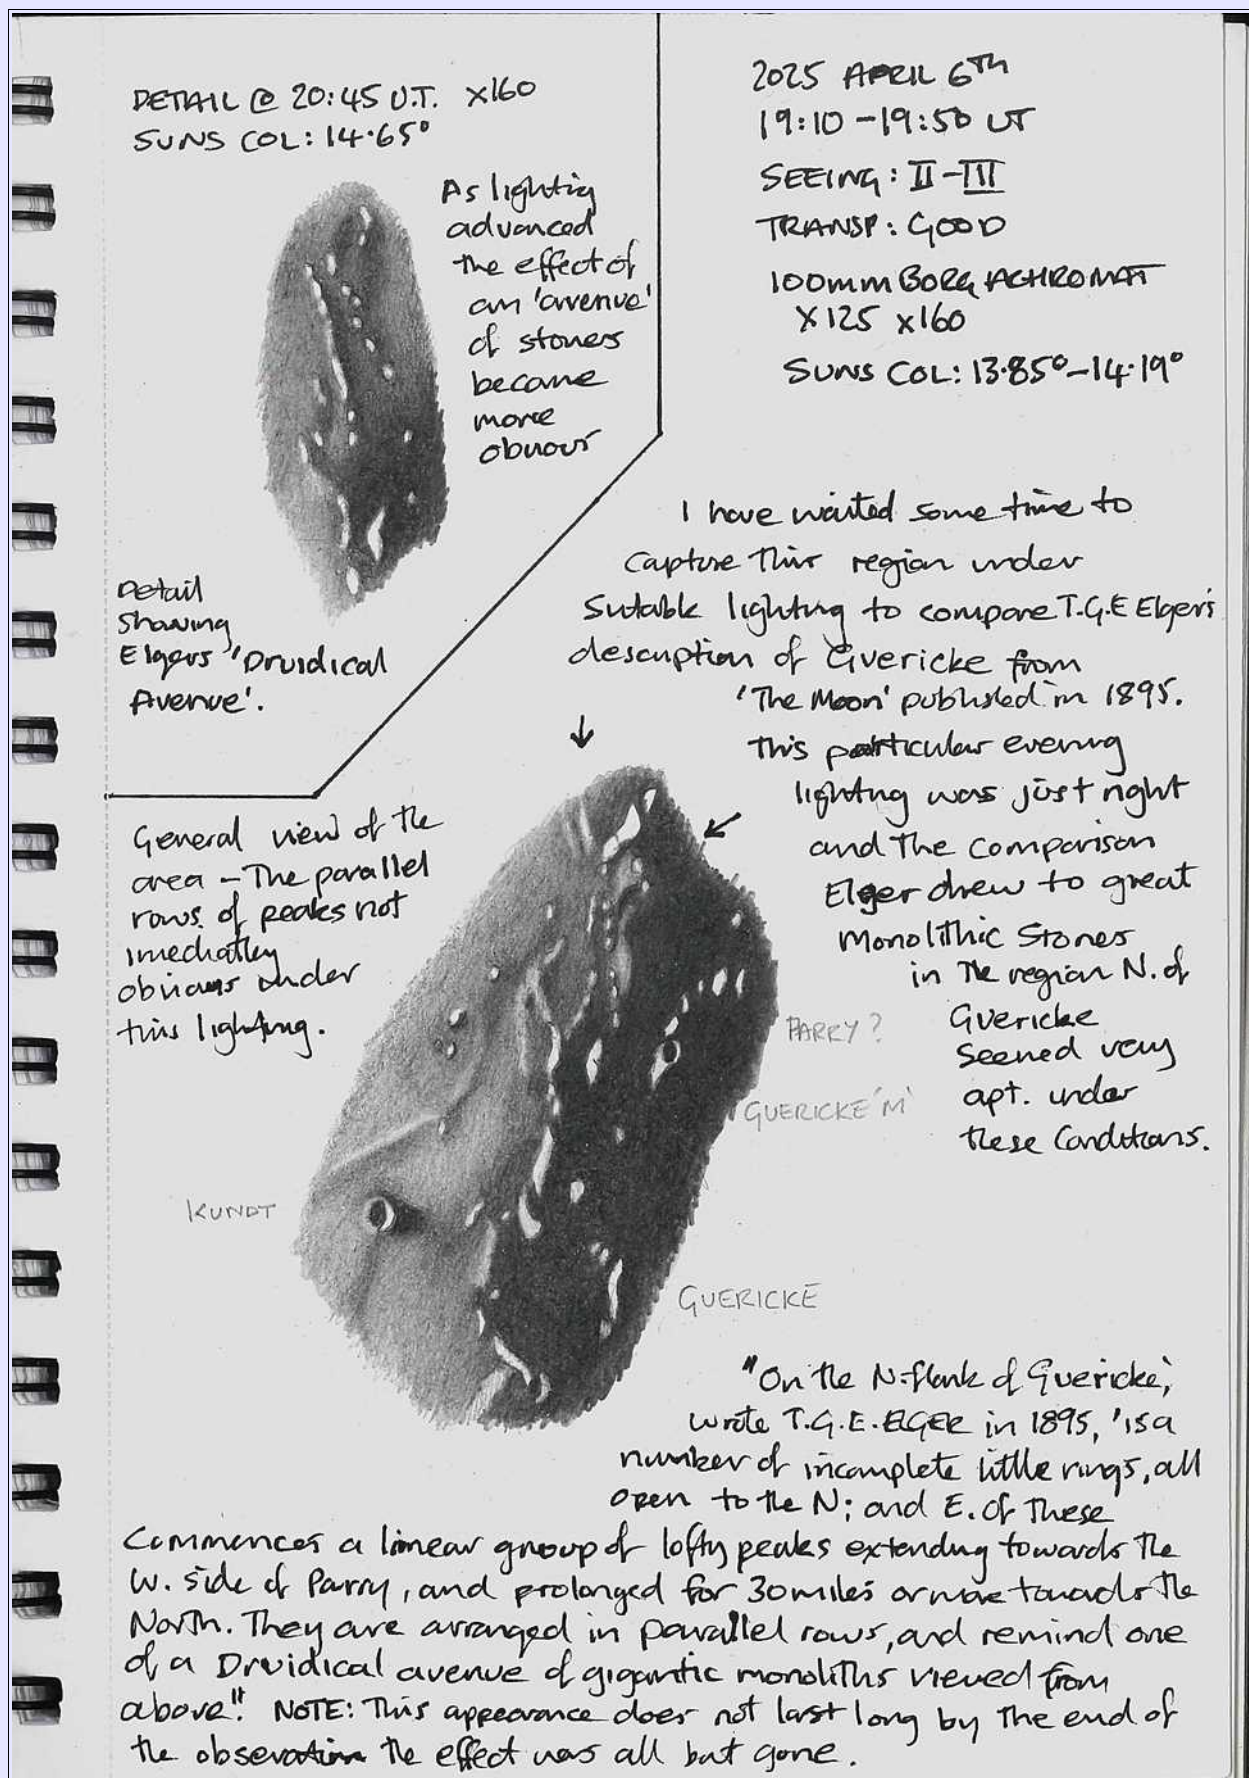 DETAIL @ 20:45 U.T. x160
SUNS COL: 14.65°
As lightig
advanced
the effect of
an 'avenue'
of stones
became
more
obvious
Detail
Showing
Elgers 'Druidical
Avenue'.
2025 APRIL 6TH
19:10 - 19:50 UT
SEEING: II-III
TRANSP: GOOD
100mm BORG ACHROMAT
X125 x160
SUNS COL: 13.85°-14.19°
I have waited some time to
capture this region under
Sutable lighting to compare T.G.E Elger's
description of Guericke from
'The Moon' published in 1895.
This particular evening
lighting was just right
and the comparison
Elger drew to great
Monolithic Stones
in the region N. of
Guericke
seemed very
apt. under
these conditions.
General view of the
area - The parallel
rows of peaks not
imediatley
obvious under
this lighting.
PARRY?
GUERICKE 'M'
KUNDT
GUERICKE
"On the N.flank of Guericke',
wrote T.G.E. ELGER in 1895, 'is a
number of incomplete little rings, all
open to the N; and E. of these
Commences a linear group of lofty peaks extending towards the
W. side of Parry, and prolonged for 30 miles or more towards the
North. They are arranged in parallel rows, and remind one
of a Druidical avenue of gigantic monoliths viewed from
above". NOTE: This appearance does not last long by the end of
the observation the effect was all but gone.